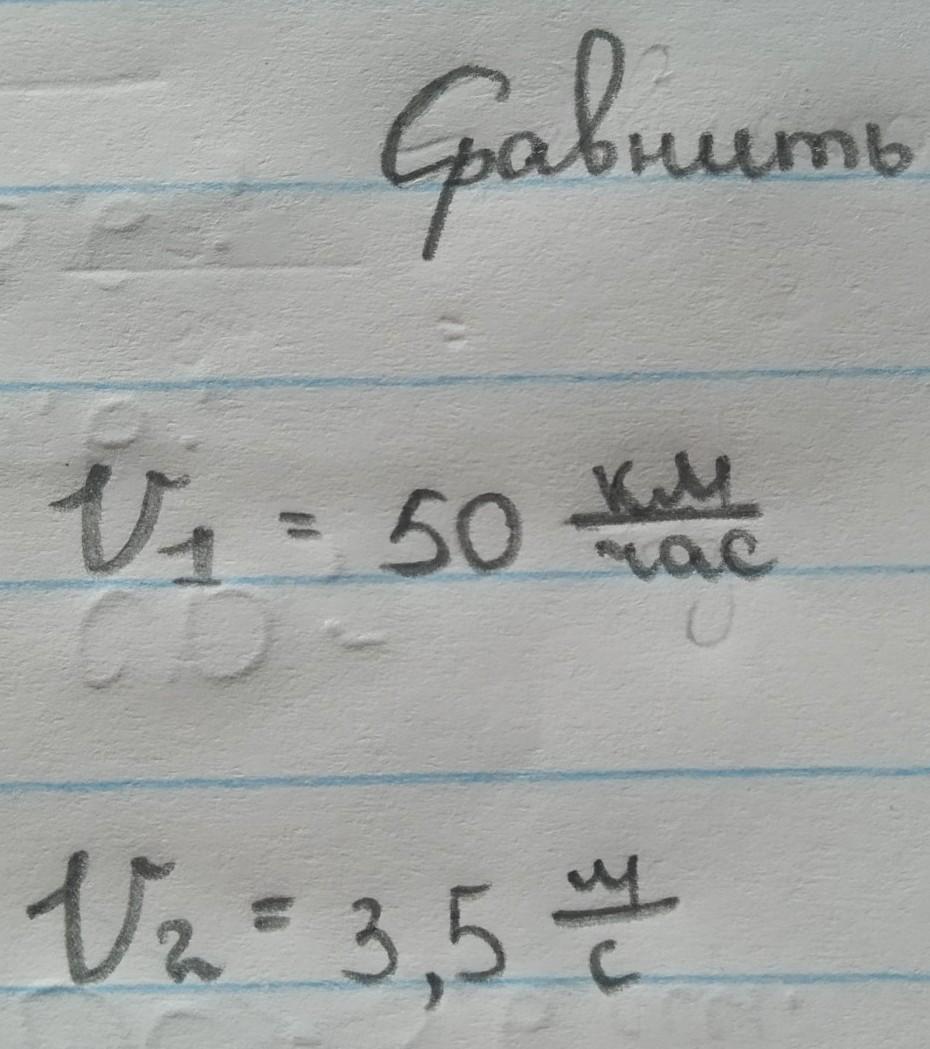 Сравнить
V₁ = 50 км/час
V₂ = 3,5 м/с